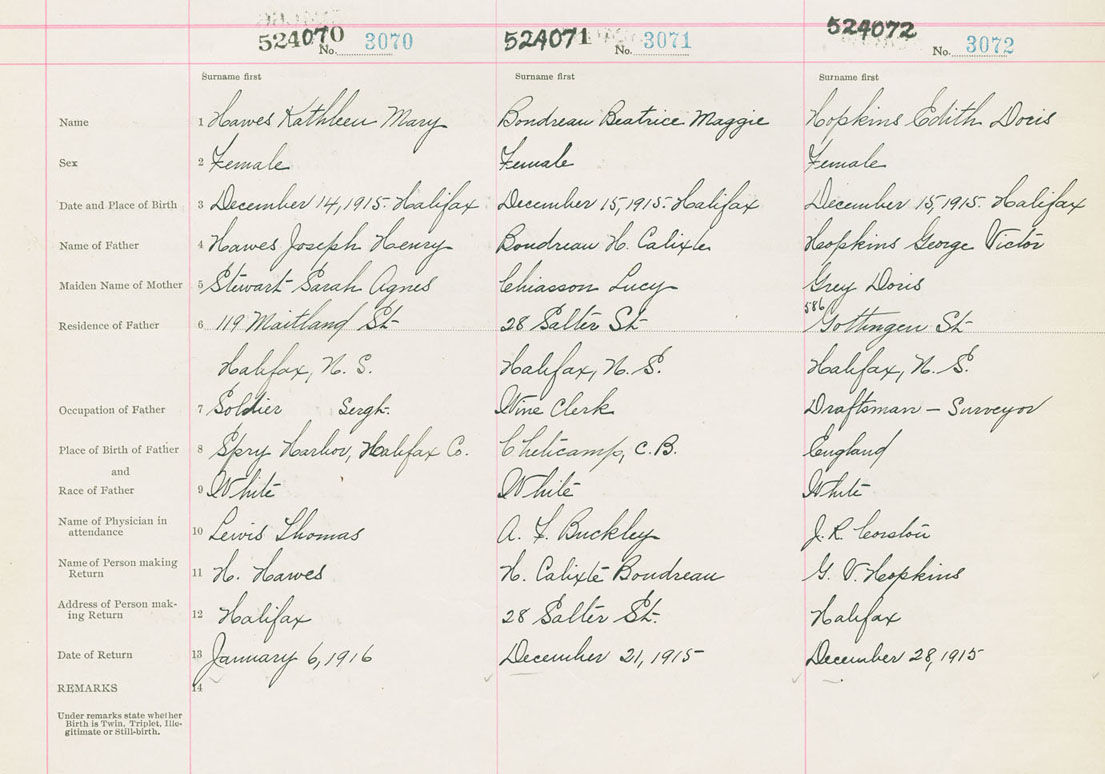 524070 No. 3070 524071 No. 3071 524072 No. 3072
Surname first Surname first Surname first
Name 1 Hawes Kathleen Mary Boudreau Beatrice Maggie Hopkins Edith Doris
Sex 2 Female Female Female
Date and Place of Birth 3 December 14, 1915. Halifax December 15, 1915. Halifax December 15, 1915. Halifax
Name of Father 4 Hawes Joseph Henry Boudreau H. Calixte Hopkins George Victor
Maiden Name of Mother 5 Stewart Sarah Agnes Chiasson Lucy Grey Doris
Residence of Father 6 119 Maitland St 28 Salter St 586 Gottingen St
Halifax, N. S. Halifax, N. S. Halifax, N. S.
Occupation of Father 7 Soldier Sergt. Wine Clerk Draftsman – Surveyor
Place of Birth of Father 8 Spry Harbor, Halifax Co. Cheticamp, C.B. England
and
Race of Father 9 White White White
Name of Physician in
attendance 10 Lewis Thomas A. F. Buckley J. R. Corston
Name of Person making
Return 11 H. Hawes H. Calixte Boudreau G. V. Hopkins
Address of Person mak-
ing Return 12 Halifax 28 Salter St. Halifax
Date of Return 13 January 6, 1916 December 21, 1915 December 28, 1915
REMARKS 14
Under remarks state whether
Birth is Twin, Triplet, Ille-
gitimate or Still-birth.